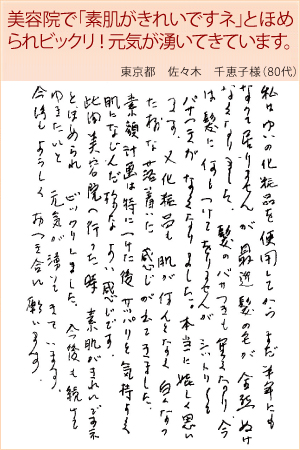 美容院で「素肌がきれいですネ」とほめ
られビックリ！元気が湧いてきています。
東京都　佐々木　千恵子様（80代）
私はゆいの化粧品を使用してから まだ半年にも
なって居りませんが 最近髪の毛が全然ぬけ
なくなりました。髪のパサつきも無くなり、今
は髪に何もつけておりませんが
パサつきがなくなりました。本当に嬉しく思い
ます。又化粧品も肌が何んとなく白くなっ
た様な落着いた感じが出てきました。
素顔計画は特につけた後サッパリと気持よく
肌になじんだ様なよい感じです。
此間美容院へ行った時 素肌がきれいですネ
とほめられ ビックリしました。今後も続けて
ゆきたいと 元気が湧いてきています。
今後もよろしく おつき合い願います。